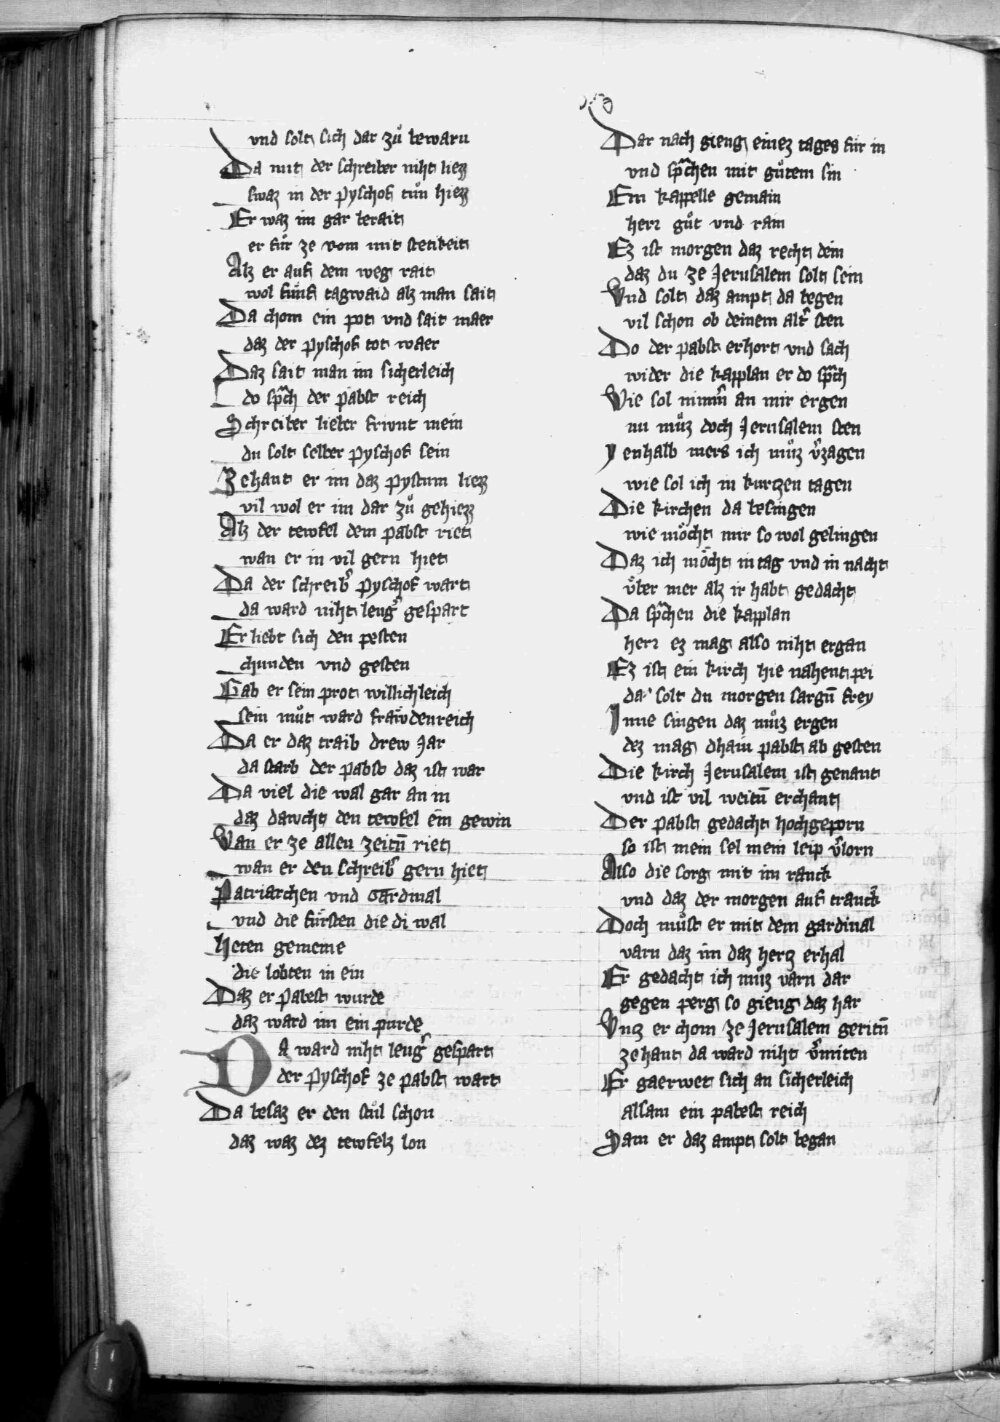 vnd solt sich dar zuͦ bewarn
Da mit der schreiber niht liezz
swaz in der pyschof tuͦn hiezz
Er waz im gar berait
er fuͦr ze vom mit stetikeit
Alz er auf dem weg rait
wol fuͤnf tagwaid alz man sait
Da chom ein pot vnd sait maer
daz der pyschof tot waer
Daz sait man im sicherleich
do sprach der pabst reich
Schreiber lieber frivnt mein
du solt selber pyschof sein
Zehant er im daz pystum liezz
vil wol er im dar zuͦ gehiezz
Alz der tewfel dem pabst riet
wan er in vil gern hiet
Da der schreiber pyschof wart
da ward niht lenger gespart
Er liebt sich den pesten
chunden vnd gesten
Gab er sein prot willichleich
sein muͦt ward fraẅdenreich
Da er daz traib drew Jar
da starb der pabst daz ist war
Da viel die wal gar an in
daz dawcht den tewfel ein gewin
Wan er ze allen zeitn̄ riet
wan er den schreiber gern hiet
Patriarchen vnd Gardinal
vnd die fuͤrsten die di wal
Heten gemeine
die lobten in ein
Daz er pabest wurde
daz ward im ein purde
DA ward niht lenger gespart
der pyschof ze pabst wart
Da besaz er den stuͦl schon
daz waz dez tewfelz lon
Dar nach gieng einez tages fuͤr in
vnd sprachen mit guͦtem sin
Ein kappelle gemain
herr guͦt vnd rain
Ez ist morgen daz recht dein
daz du ze Jerusalem solt sein
Vnd solt daz ampt da begen
vil schon ob deinem altar sten
Do der pabst erhort vnd sach
wider die kapplan er do sprach
Wie sol nimmer an mir ergen
nu muͦz doch Jerusalem sten
Jenhalb mers ich muͦz verzagen
wie sol ich in kurtzen tagen
Die kirchen da besingen
wie moͤcht mir so wol gelingen
Daz ich moͤcht in tag vnd in nacht
vͤber mer alz ir habt gedacht
Da sprachen die kapplan
herr ez mag also niht ergan
Ez ist ein kirch hie nahent pei
da solt du morgen sorgn̄ frey
Inne singen daz muͦz ergen
dez mag dhain pabst ab gesten
Die kirch Jerusalem ist genant
vnd ist vil weitn̄ erchant
Der pabst gedacht hochgeporn
so ist mein sel mein leip verlorn
Also die sorg mit im ranck
vnd daz der morgen auf tranck
Doch muͦst er mit dem gardinal
varn daz im daz hertz erhal
Er gedacht ich muͦz varn dar
gegen perg so gieng daz har
Vntz er chom ze Jerusalem geritn̄
zehant da ward niht vermiten
Er gaerwet sich an sicherleich
alsam ein pabest reich
Sam er daz ampt solt began